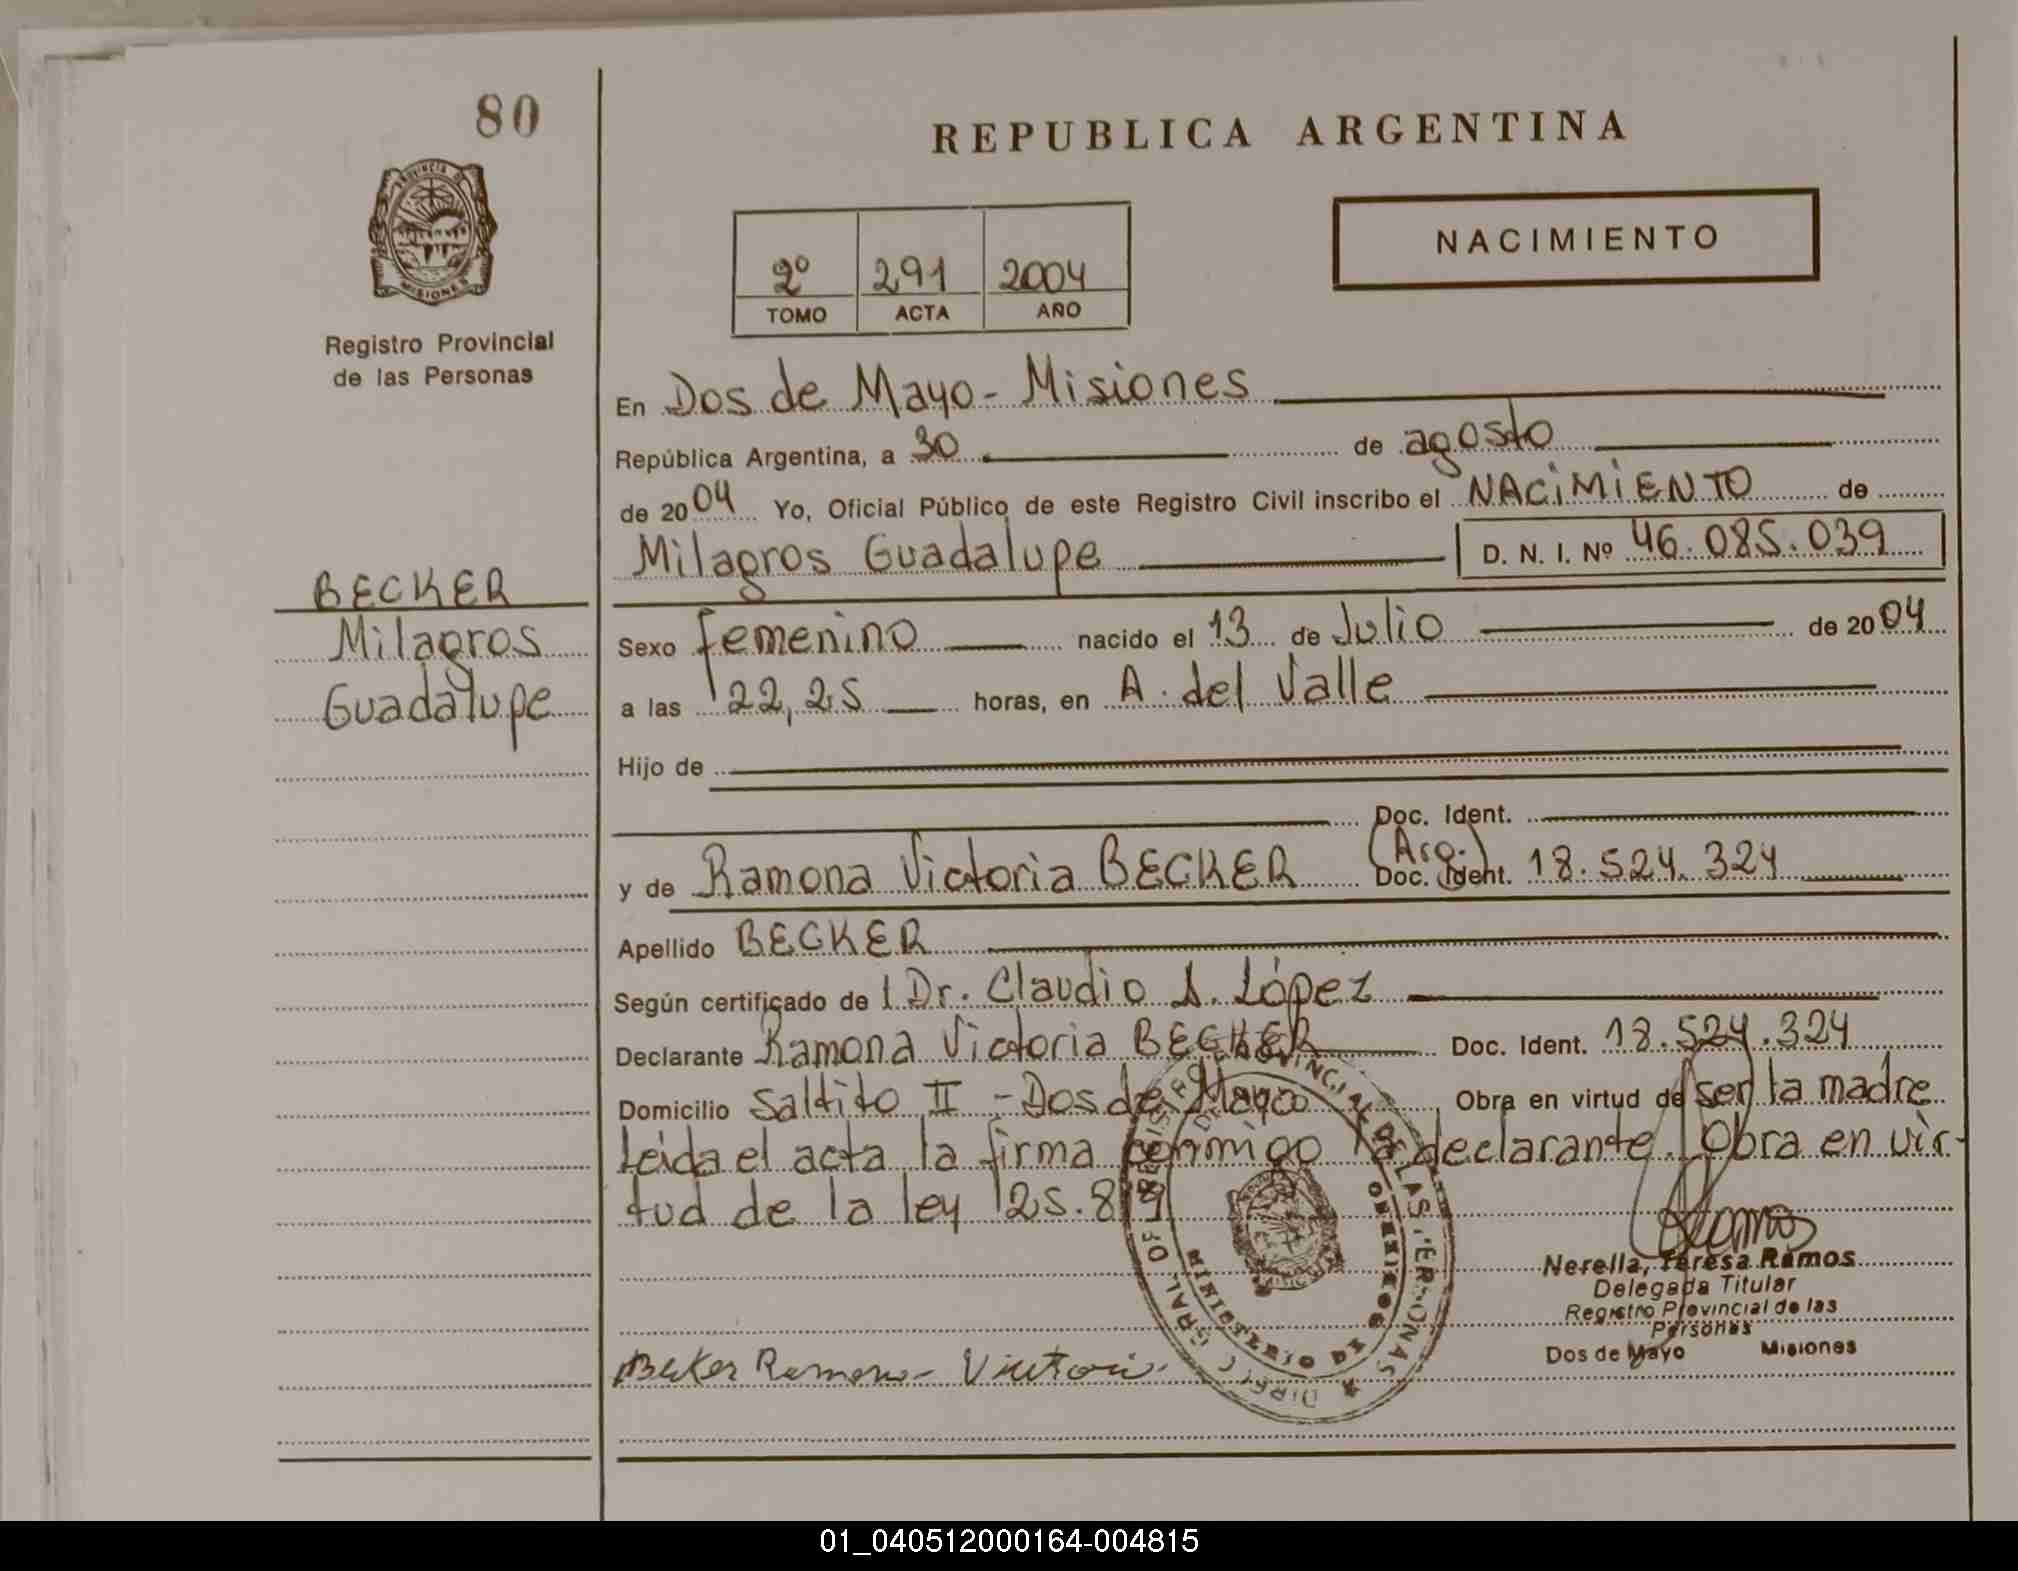 80
PROVINCIA DE
MISIONES
Registro Provincial
de las Personas
BECKER
Milagros
Guadalupe
REPUBLICA ARGENTINA
2º 291 2004
TOMO ACTA AÑO
NACIMIENTO
En Dos de Mayo - Misiones
República Argentina, a 30 de agosto
de 2004 Yo, Oficial Público de este Registro Civil inscribo el NACIMIENTO de
Milagros Guadalupe D. N. I. Nº 46.085.039
Sexo femenino nacido el 13 de Julio de 2004
a las 22,25 horas, en A. del Valle
Hijo de
Doc. Ident.
y de Ramona Victoria BECKER (Arg.) Doc. Ident. 18.524.324
Apellido BECKER
Según certificado de Dr. Claudio A. López
Declarante Ramona Victoria BECKER Doc. Ident. 18.524.324
Domicilio Saltito II - Dos de Mayo Obra en virtud de ser la madre
Leida el acta la firma conmigo la declarante. Obra en vir-
tud de la ley 25.819
Nerella, Teresa Ramos
Delegada Titular
Registro Provincial de las
Personas
Dos de Mayo Misiones
Beker Ramona Victoria
DIREC. GRAL. DE REGISTRO PROVINCIAL DE LAS PERSONAS
MINISTERIO DE GOBIERNO
01_040512000164-004815